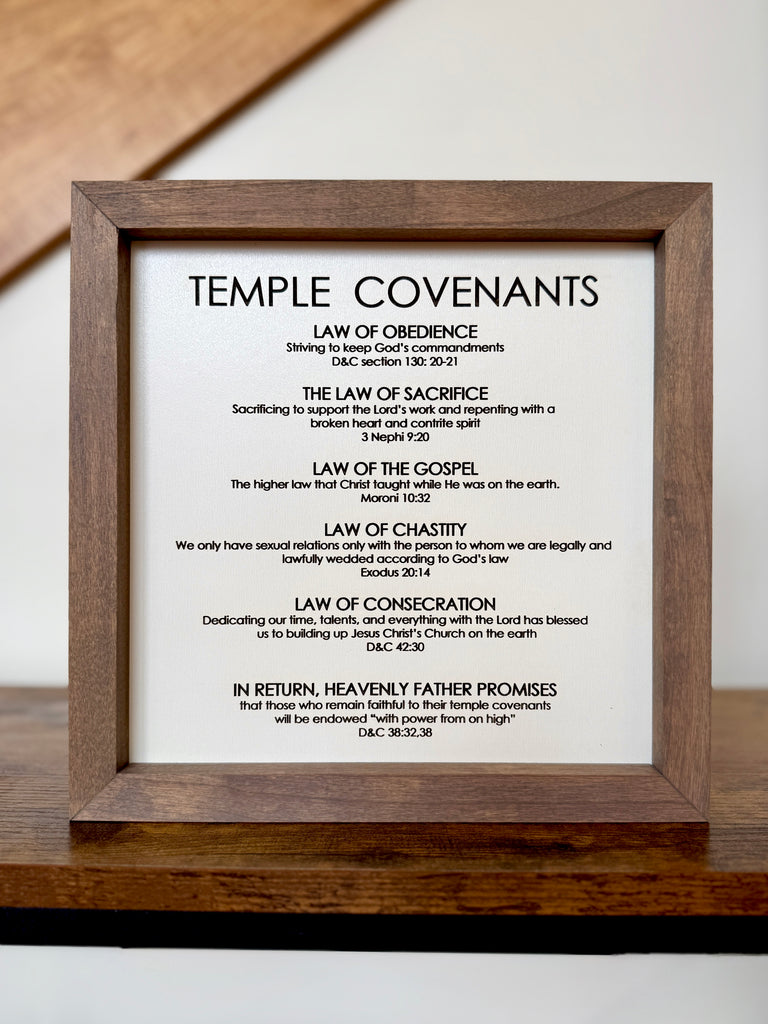 TEMPLE COVENANTS
LAW OF OBEDIENCE
Striving to keep God's commandments
D&C section 130: 20-21
THE LAW OF SACRIFICE
Sacrificing to support the Lord's work and repenting with a
broken heart and contrite spirit
3 Nephi 9:20
LAW OF THE GOSPEL
The higher law that Christ taught while He was on the earth.
Moroni 10:32
LAW OF CHASTITY
We only have sexual relations only with the person to whom we are legally and
lawfully wedded according to God's law
Exodus 20:14
LAW OF CONSECRATION
Dedicating our time, talents, and everything with the Lord has blessed
us to building up Jesus Christ's Church on the earth
D&C 42:30
IN RETURN, HEAVENLY FATHER PROMISES
that those who remain faithful to their temple covenants
will be endowed "with power from on high"
D&C 38:32,38